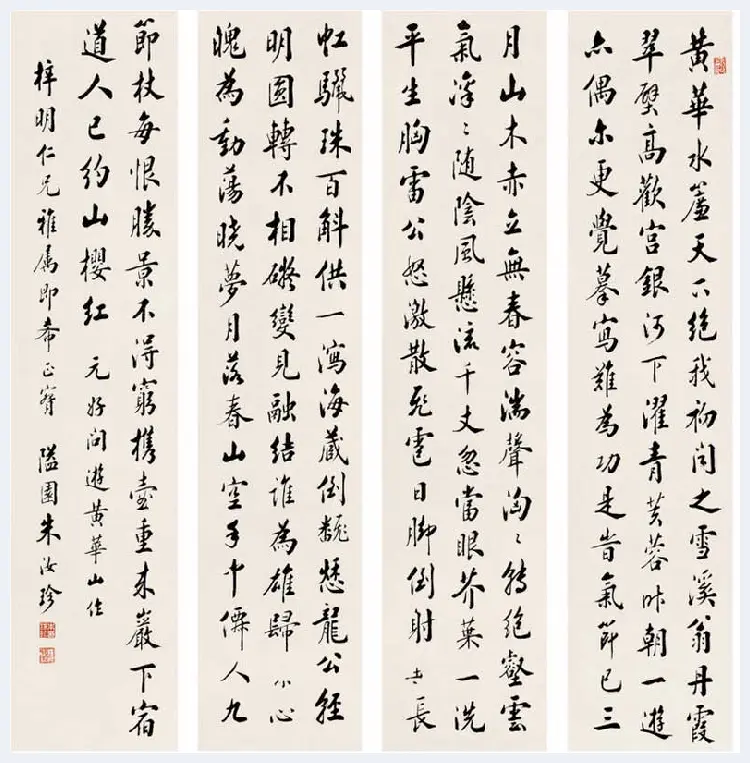 黃華水簾天下絕我初聞之雪溪翁丹霞
翠壁高歡宮銀河下濯青芙蓉昨朝一遊
亦偶尔更覺摹寫難為功是旹氣節已三
月山木赤立無春容湍聲洶〻轉絕壑雲
氣浮〻隨陰風懸流千丈忽當眼芥葉一洗
平生胸雷公怒激散飛雹日腳倒射垂長
虹驪珠百斛供一瀉海藏倒飜愁龍公輕
明圓轉不相礙變見融結誰為雄歸來心
魄為動蕩曉夢月落春山空手中僊人九
節杖每恨勝景不得窮攜壺重來巖下宿
道人已約山櫻紅 元好問遊黃華山作
梓明仁兄雅屬即希正寶 隘園朱汝珍